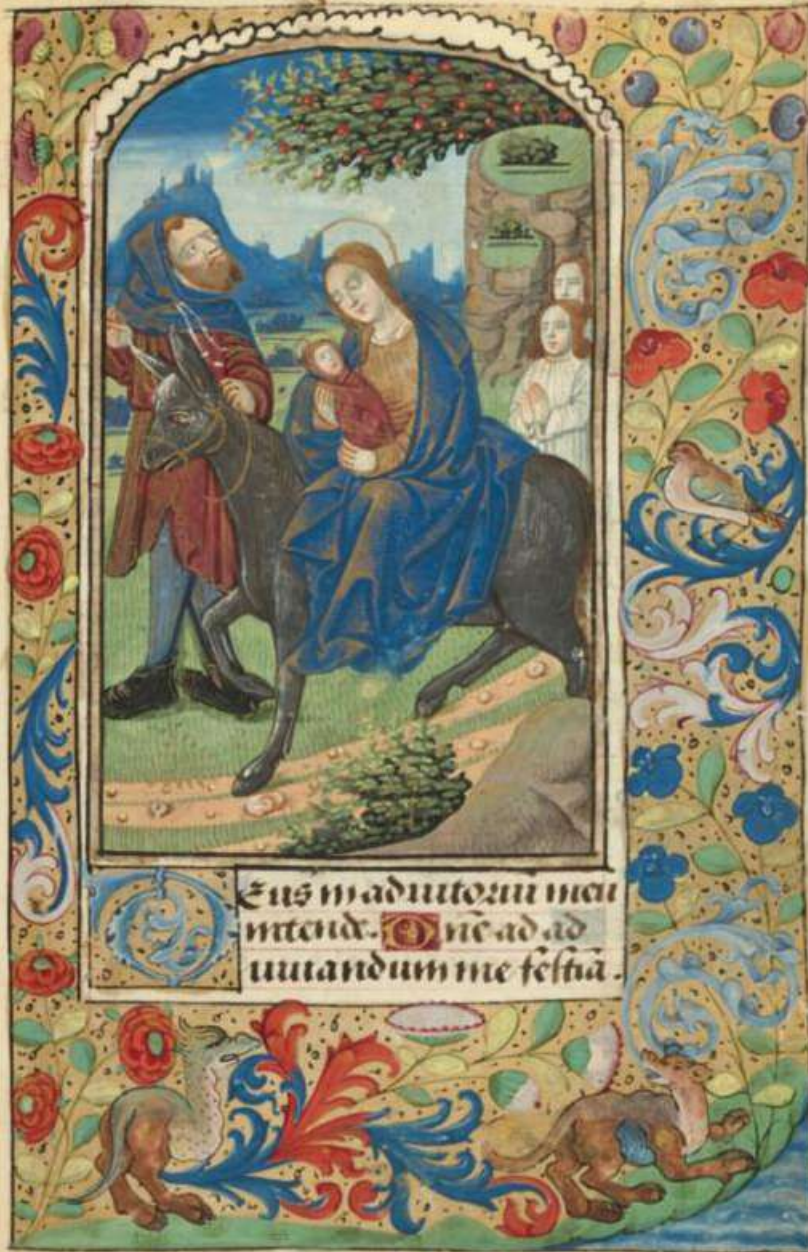 Deus in adiutoriu meu
intende. Dne ad ad
iuuandum me festia.